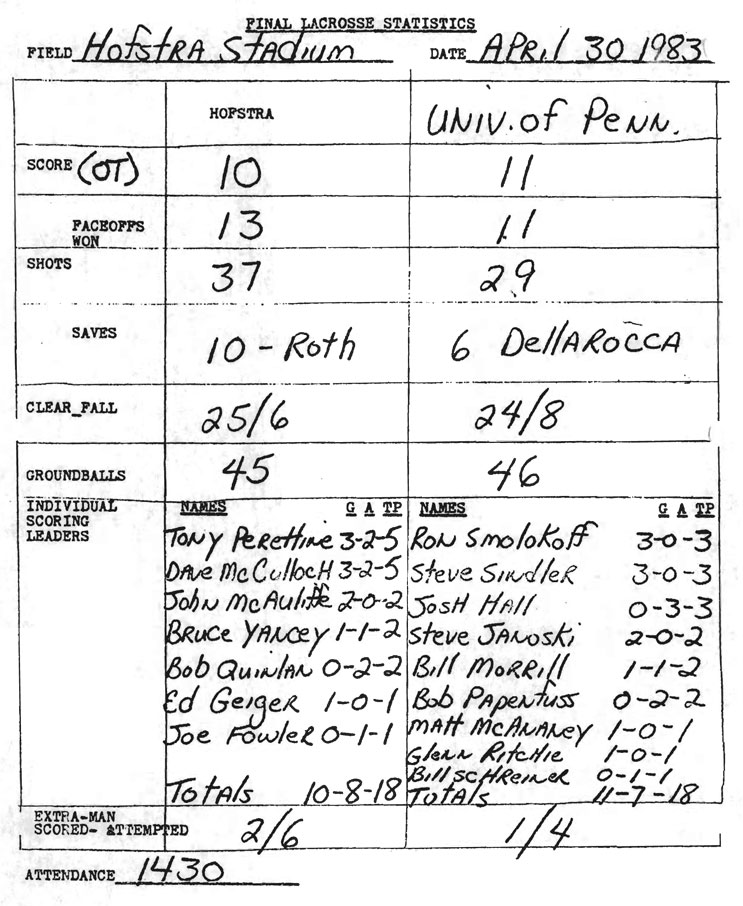 FINAL LACROSSE STATISTICS
FIELD Hofstra Stadium DATE April 30 1983
HOFSTRA Univ. of Penn.
SCORE (OT) 10 11
FACEOFFS WON 13 11
SHOTS 37 29
SAVES 10 - Roth 6 DellaRocca
CLEAR_FALL 25/6 24/8
GROUNDBALLS 45 46
INDIVIDUAL SCORING LEADERS
NAMES G A TP NAMES G A TP
Tony Perettine 3-2-5 Ron Smolokoff 3-0-3
Dave McCulloch 3-2-5 Steve Sindler 3-0-3
John McAuliffe 2-0-2 Josh Hall 0-3-3
Bruce Yancey 1-1-2 Steve Janoski 2-0-2
Bob Quinlan 0-2-2 Bill Morrill 1-1-2
Ed Geiger 1-0-1 Bob Papenfuss 0-2-2
Joe Fowler 0-1-1 Matt McAnaney 1-0-1
Glenn Ritchie 1-0-1
Bill Schreiner 0-1-1
Totals 10-8-18 Totals 11-7-18
EXTRA-MAN SCORED- ATTEMPTED 2/6 1/4
ATTENDANCE 1430